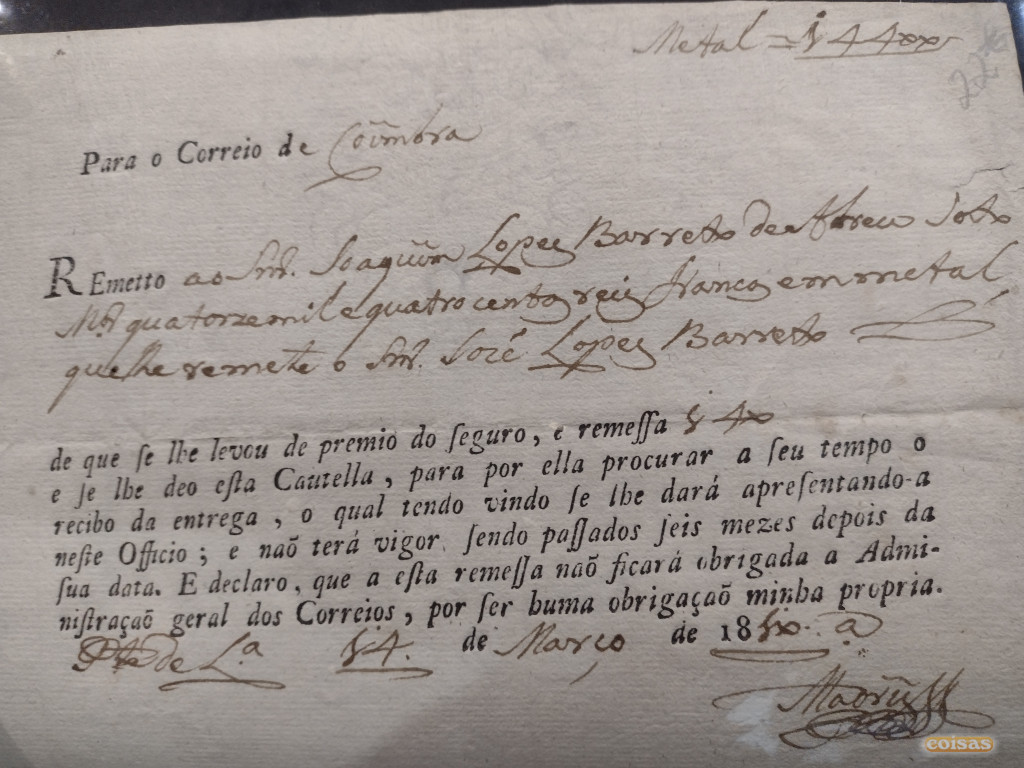 Metal = 14400
22
Para o Correio de Coimbra
REmetto ao Snr. Joaquim Lopes Barreto de Abreu Soto
Mor quatorze mil e quatrocentos reis francos em metal
que lhe remete o Snr. Jozé Lopes Barreto
de que ſe lhe levou de premio do ſeguro, e remeſſa 140
e ſe lhe deo eſta Cautella, para por ella procurar a ſeu tempo o
recibo da entrega, o qual tendo vindo ſe lhe dará apreſentando-a
neſte Officio; e naõ terá vigor, ſendo paſſados ſeis mezes depois da
ſua data. E declaro, que a eſta remeſſa naõ ficará obrigada a Admi-
niſtraçaõ geral dos Correios, por ſer huma obrigaçaõ minha propria.
Pte de La 14. de Março de 1810. a
coisas